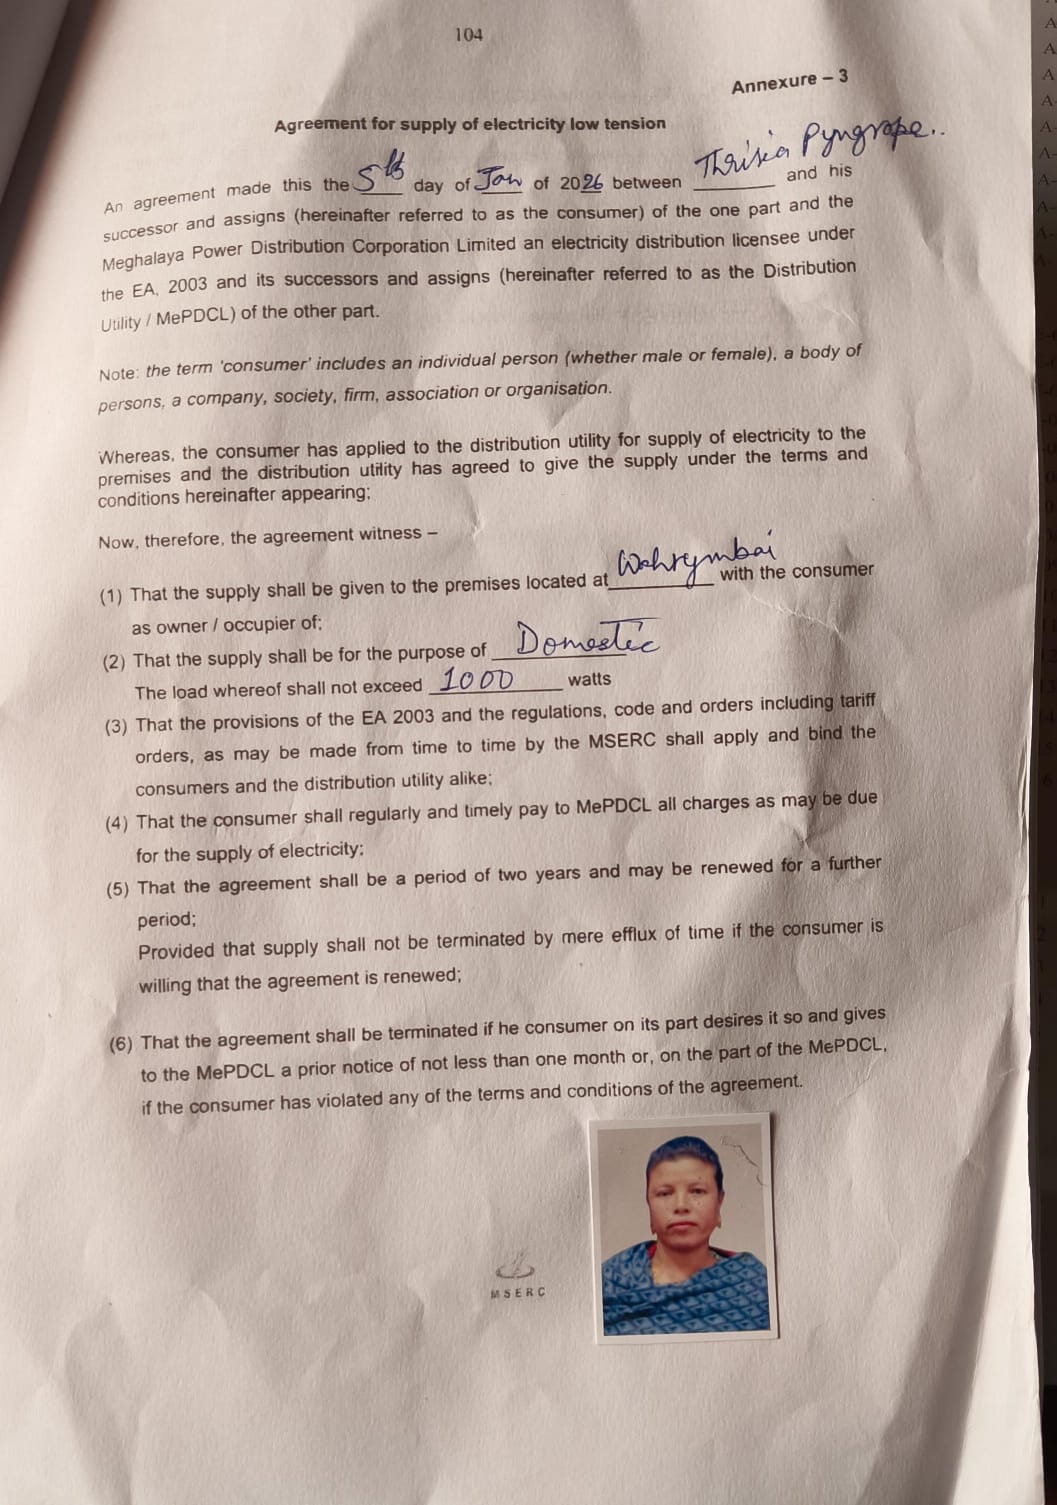 104
Annexure – 3
Agreement for supply of electricity low tension
An agreement made this the 5th day of Jan of 2026 between Thrisia Pyngrope.. and his
successor and assigns (hereinafter referred to as the consumer) of the one part and the
Meghalaya Power Distribution Corporation Limited an electricity distribution licensee under
the EA, 2003 and its successors and assigns (hereinafter referred to as the Distribution
Utility / MePDCL) of the other part.
Note: the term 'consumer' includes an individual person (whether male or female), a body of
persons, a company, society, firm, association or organisation.
Whereas, the consumer has applied to the distribution utility for supply of electricity to the
premises and the distribution utility has agreed to give the supply under the terms and
conditions hereinafter appearing;
Now, therefore, the agreement witness –
(1) That the supply shall be given to the premises located at Wahrymbai with the consumer
as owner / occupier of;
(2) That the supply shall be for the purpose of Domestic
The load whereof shall not exceed 1000 watts
(3) That the provisions of the EA 2003 and the regulations, code and orders including tariff
orders, as may be made from time to time by the MSERC shall apply and bind the
consumers and the distribution utility alike;
(4) That the consumer shall regularly and timely pay to MePDCL all charges as may be due
for the supply of electricity;
(5) That the agreement shall be a period of two years and may be renewed for a further
period;
Provided that supply shall not be terminated by mere efflux of time if the consumer is
willing that the agreement is renewed;
(6) That the agreement shall be terminated if he consumer on its part desires it so and gives
to the MePDCL a prior notice of not less than one month or, on the part of the MePDCL,
if the consumer has violated any of the terms and conditions of the agreement.
MSERC